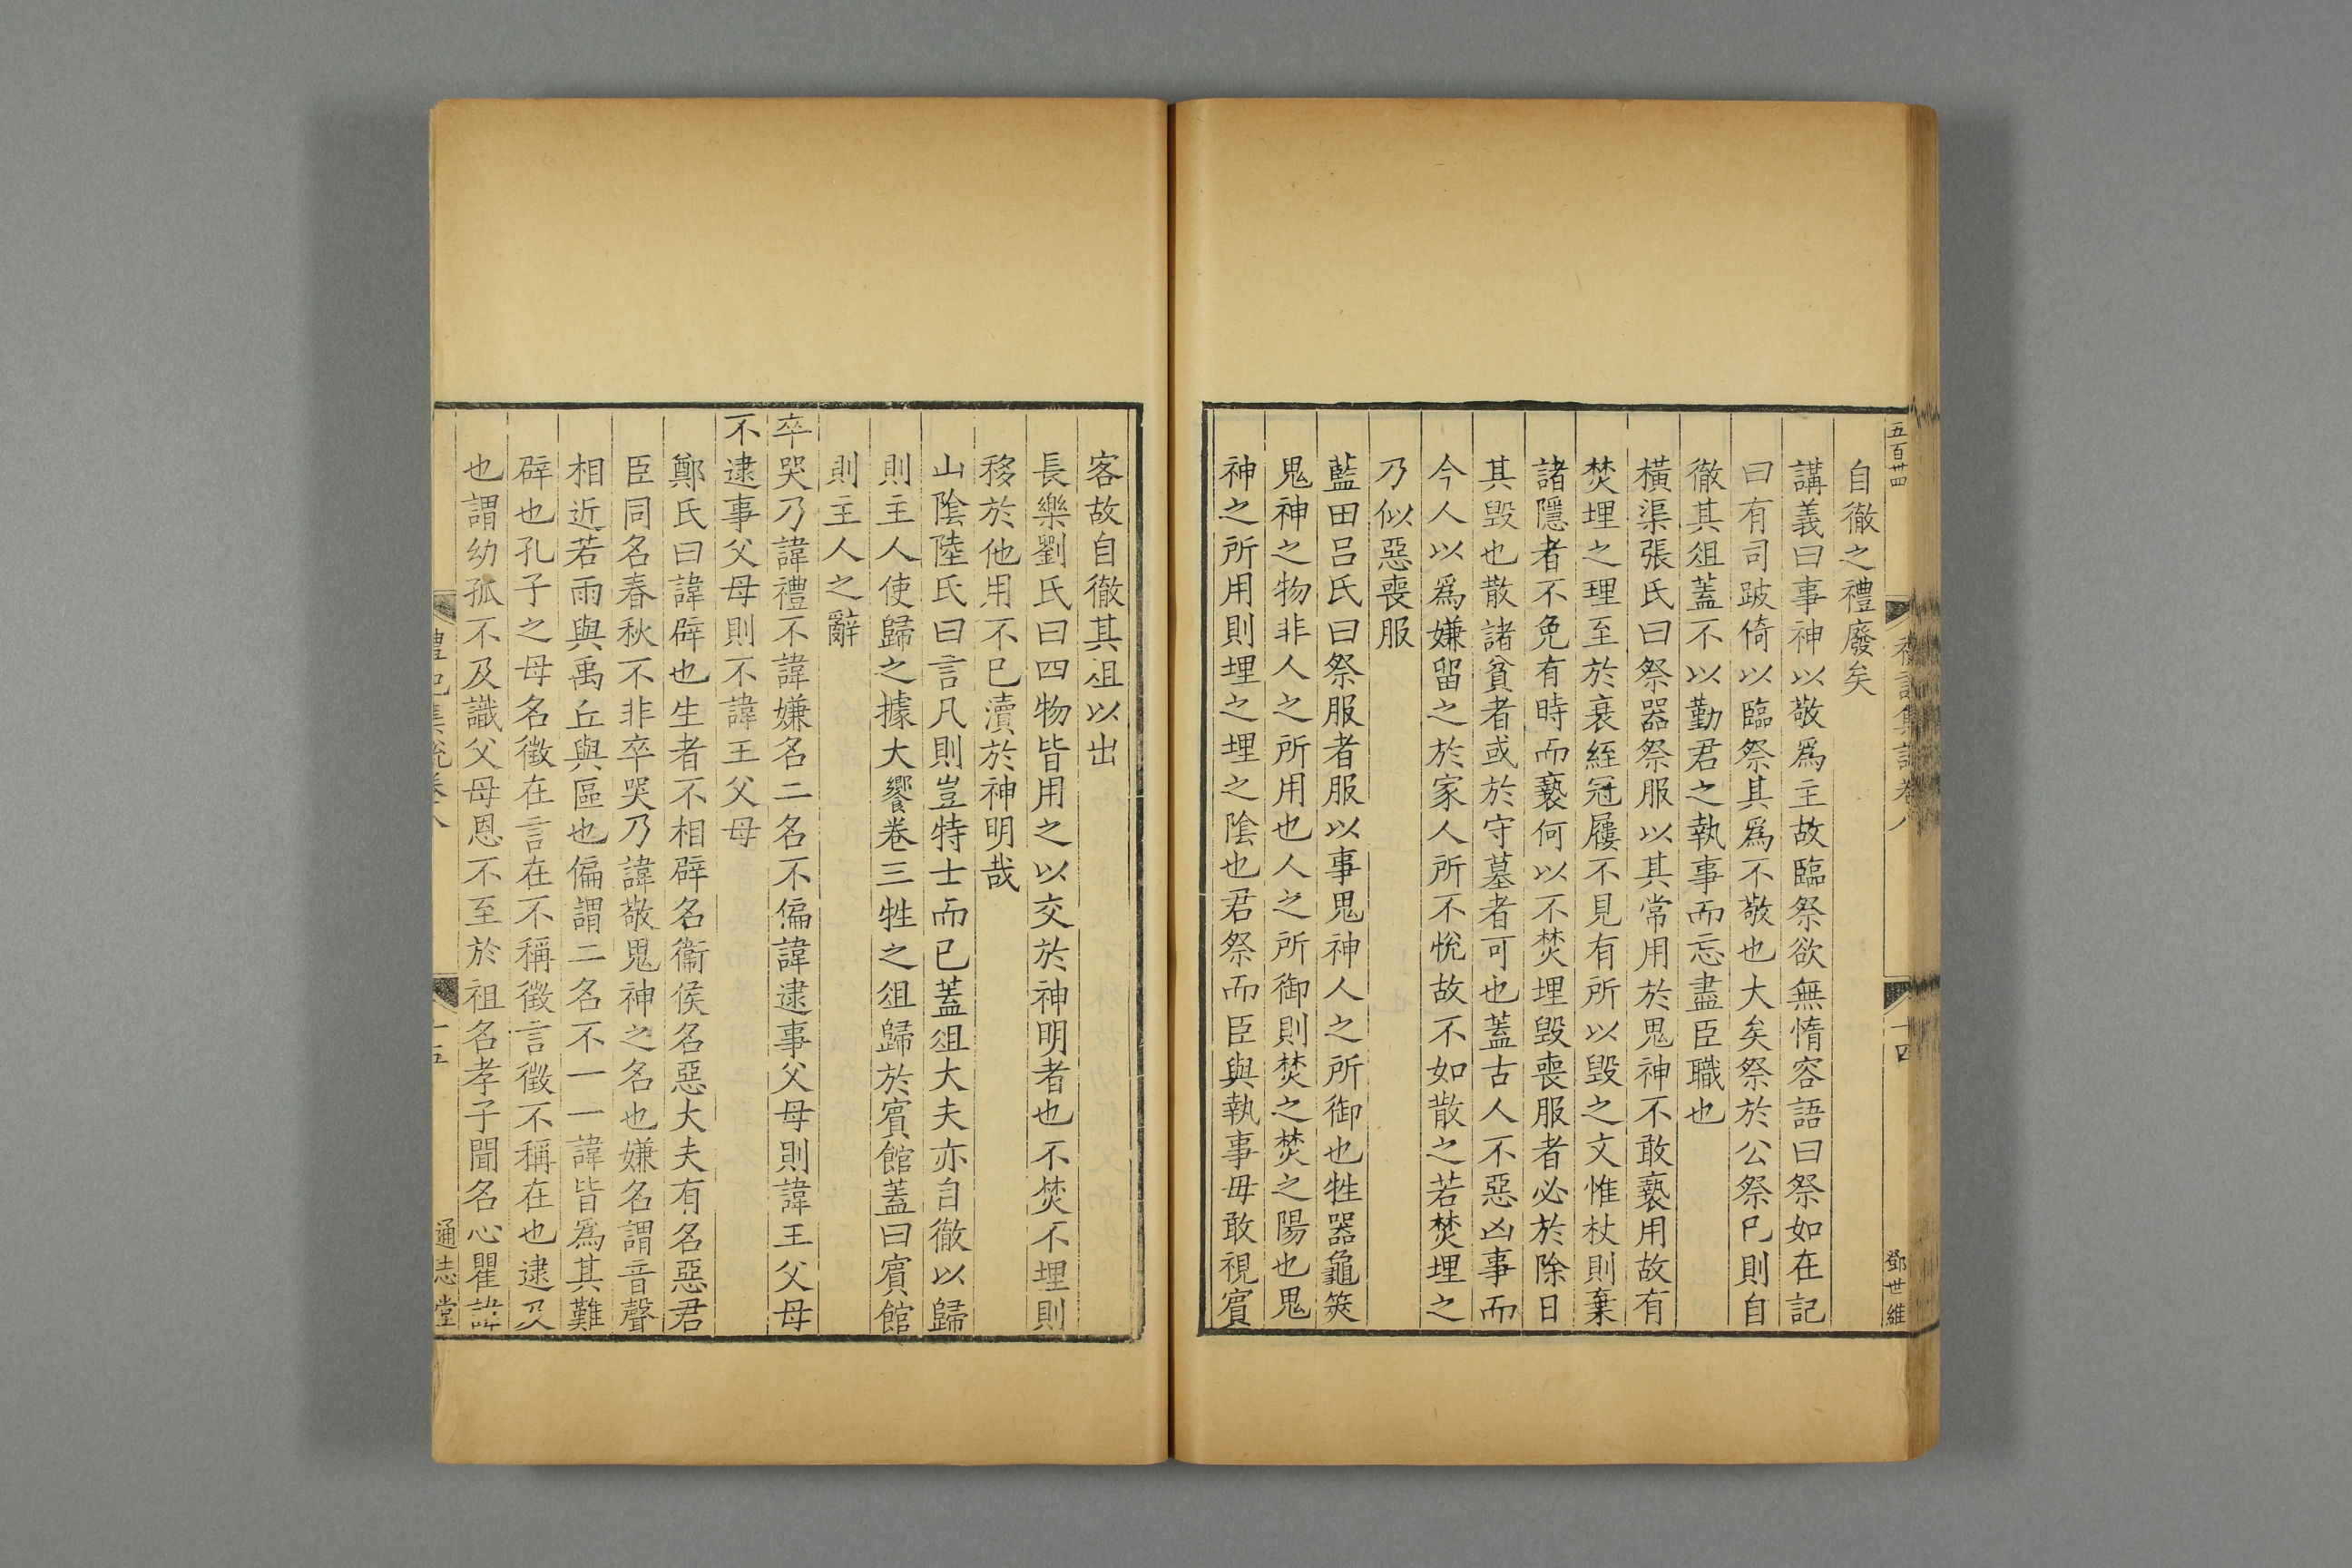 五百卅四
禮記集說卷八
十四
鄧世維
自徹之禮廢矣
講義曰事神以敬爲主故臨祭欲無惰容語曰祭如在記
曰有司跛倚以臨祭其爲不敬也大矣祭於公祭已則自
徹其俎蓋不以勤君之執事而忘盡臣職也
橫渠張氏曰祭器祭服以其常用於鬼神不敢褻用故有
焚埋之理至於衰絰冠屨不見有所以毁之文惟杖則棄
諸隱者不免有時而褻何以不焚埋毁喪服者必於除日
其毁也散諸貧者或於守墓者可也蓋古人不惡凶事而
今人以爲嫌留之於家人所不悅故不如散之若焚埋之
乃似惡喪服
藍田呂氏曰祭服者服以事鬼神人之所御也牲器龜筴
鬼神之物非人之所用也人之所御則焚之焚之陽也鬼
神之所用則埋之埋之陰也君祭而臣與執事毋敢視賓
客故自徹其俎以出
長樂劉氏曰四物皆用之以交於神明者也不焚不埋則
移於他用不已瀆於神明哉
山陰陸氏曰言凡則豈特士而已蓋俎大夫亦自徹以歸
則主人使歸之據大饗卷三牲之俎歸於賓館蓋曰賓館
則主人之辭
卒哭乃諱禮不諱嫌名二名不偏諱逮事父母則諱王父母
不逮事父母則不諱王父母
鄭氏曰諱辟也生者不相辟名衞侯名惡大夫有名惡君
臣同名春秋不非卒哭乃諱敬鬼神之名也嫌名謂音聲
相近若雨與禹丘與區也偏謂二名不一一諱皆爲其難
辟也孔子之母名徵在言在不稱徵言徵不稱在也逮及
也謂幼孤不及識父母恩不至於祖名孝子聞名心瞿諱
禮記集說卷八
十五
通志堂